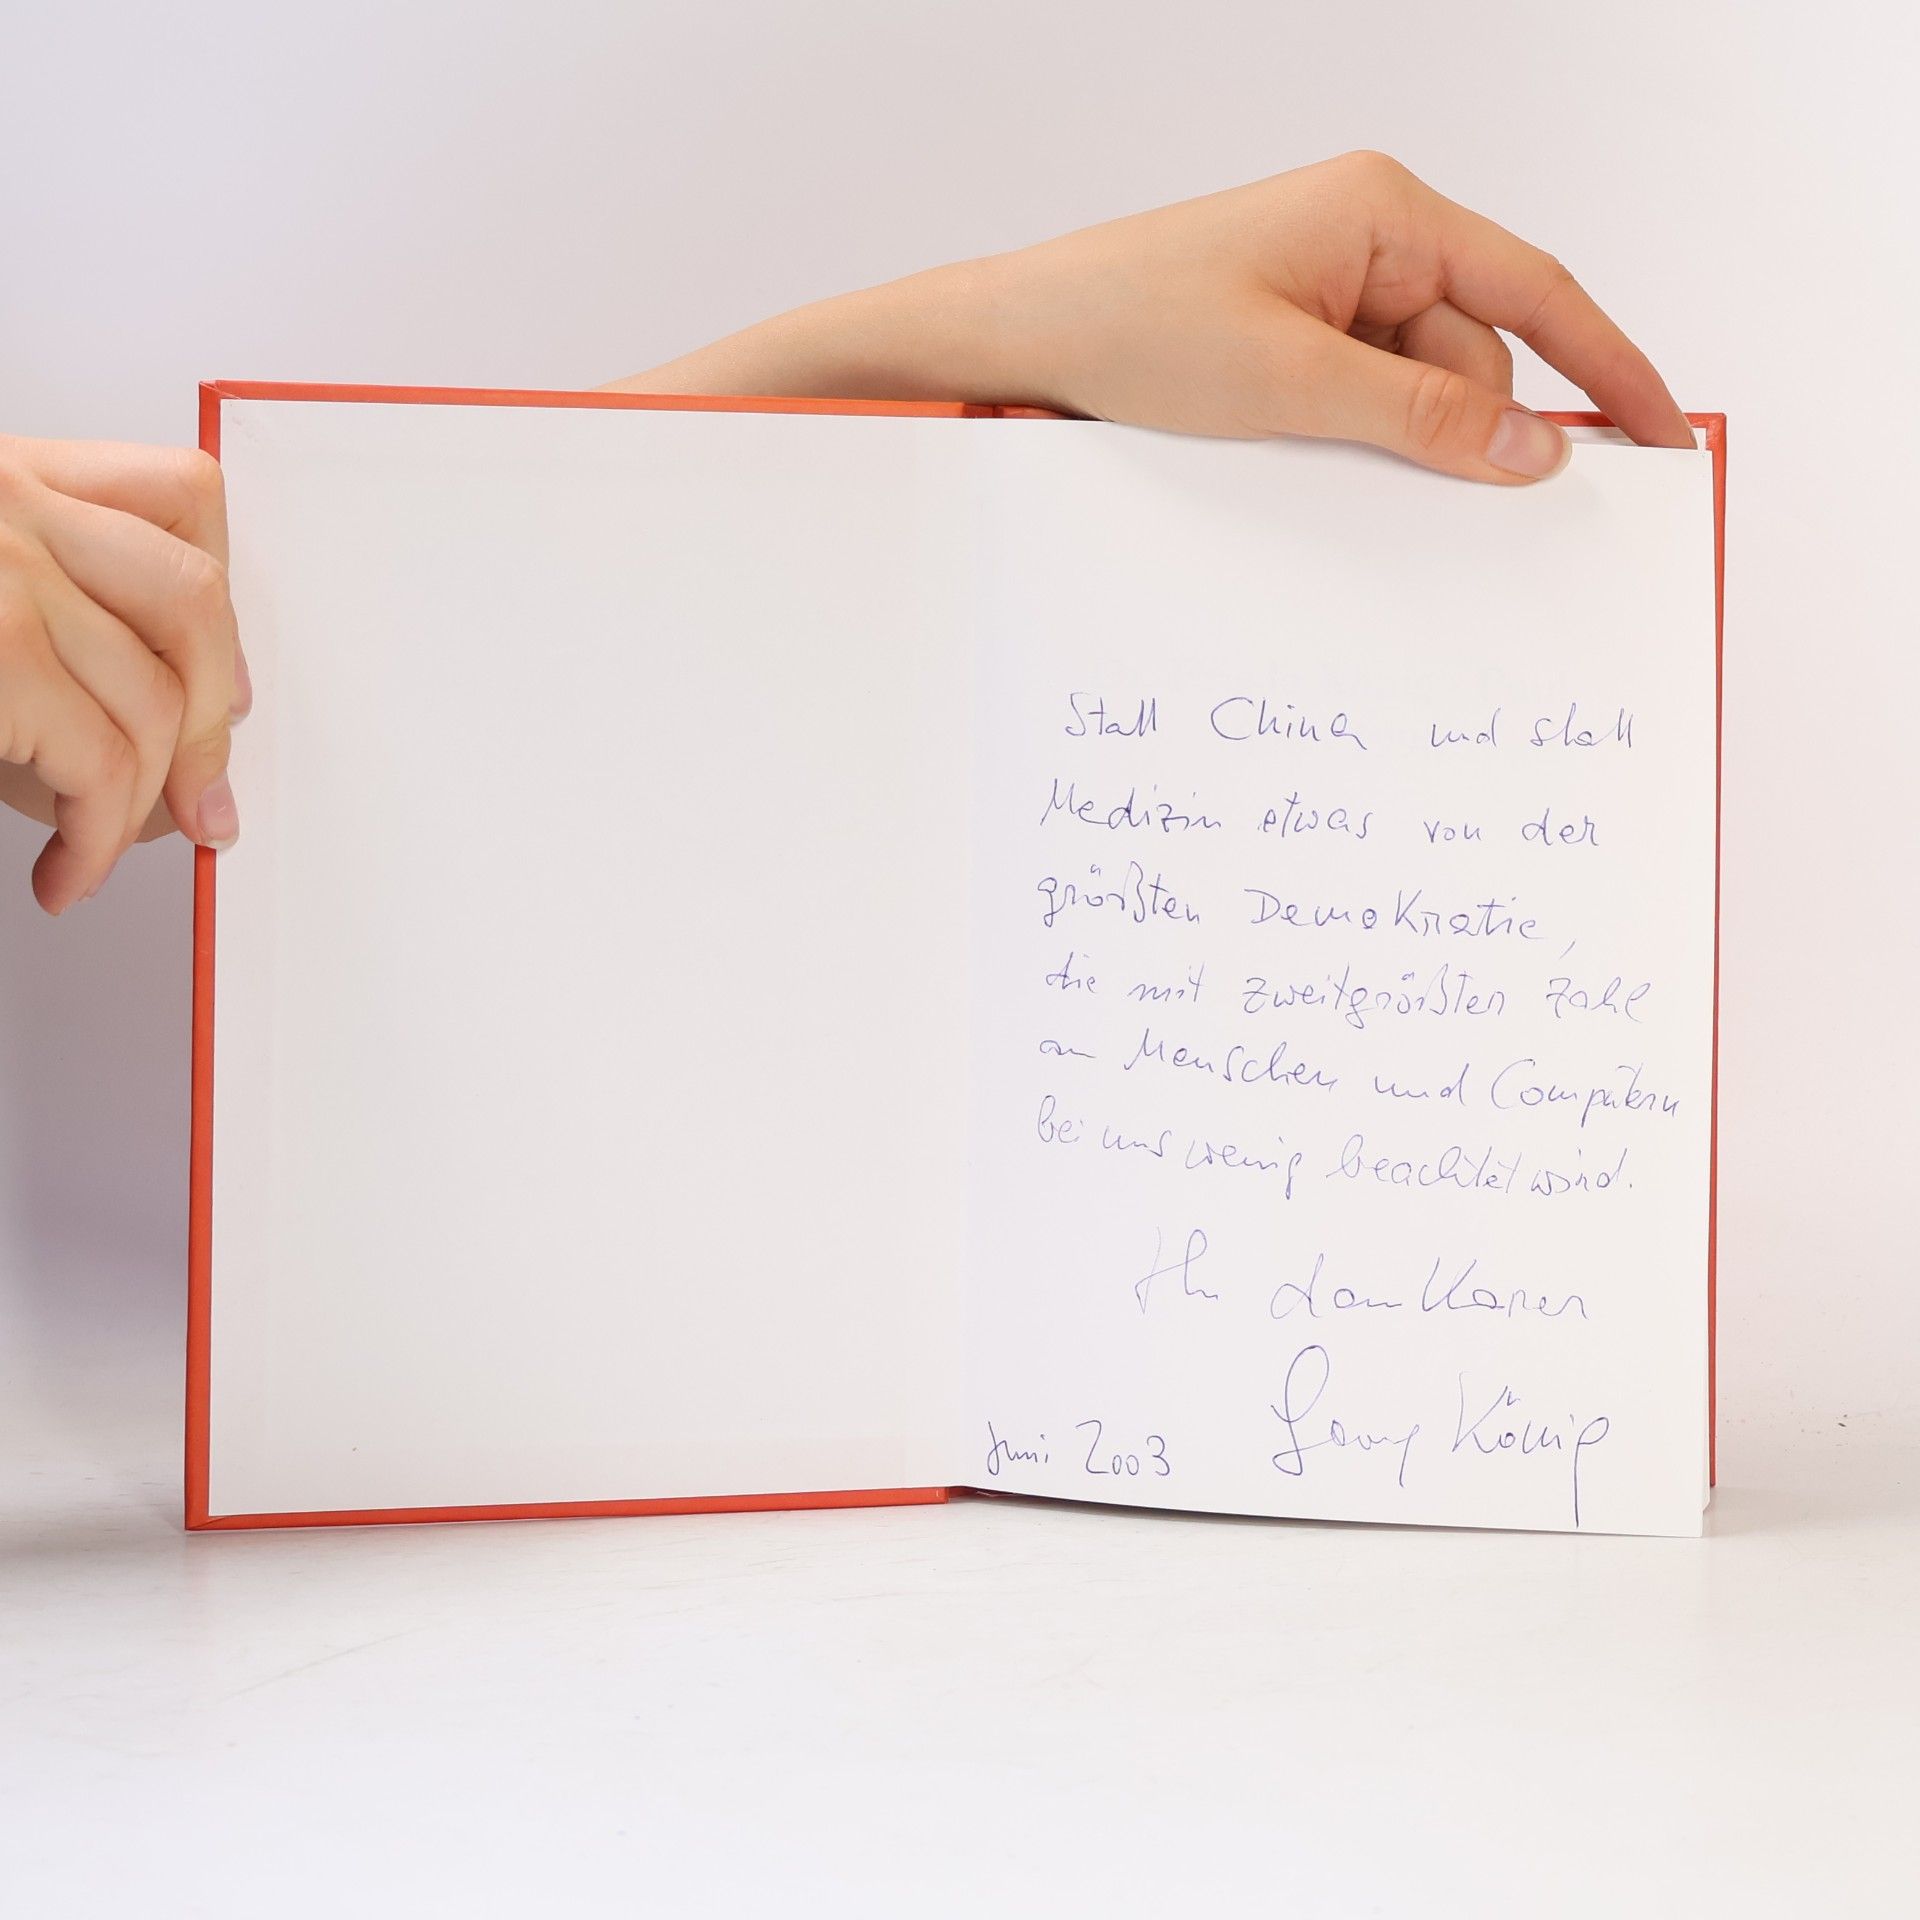 Statt China und statt
Medizin etwas von der
größten Demokratie,
die mit zweitgrößten Zahl
an Menschen und Computern
bei uns wenig beachtet wird.
Ihr dankbarer
König
Juni 2003